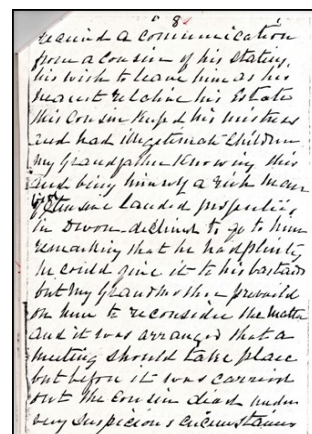 8
received a communication
from a cousin of his stating
his wish to leave him as his
nearest relative his Estate
this Cousin keeped his mistress
and had illegitimate Children
my Grandfather Knowing this
and being himself a rich man
landed properties
in Devon declined to go to him
remarking that he had plenty
he could give it to his bastards
but my Grandmother prevaild
on him to reconsider the matter
and it was arranged that a
meeting should take place
but before it was carried
out the Cousin died under
very suspicious circumstances